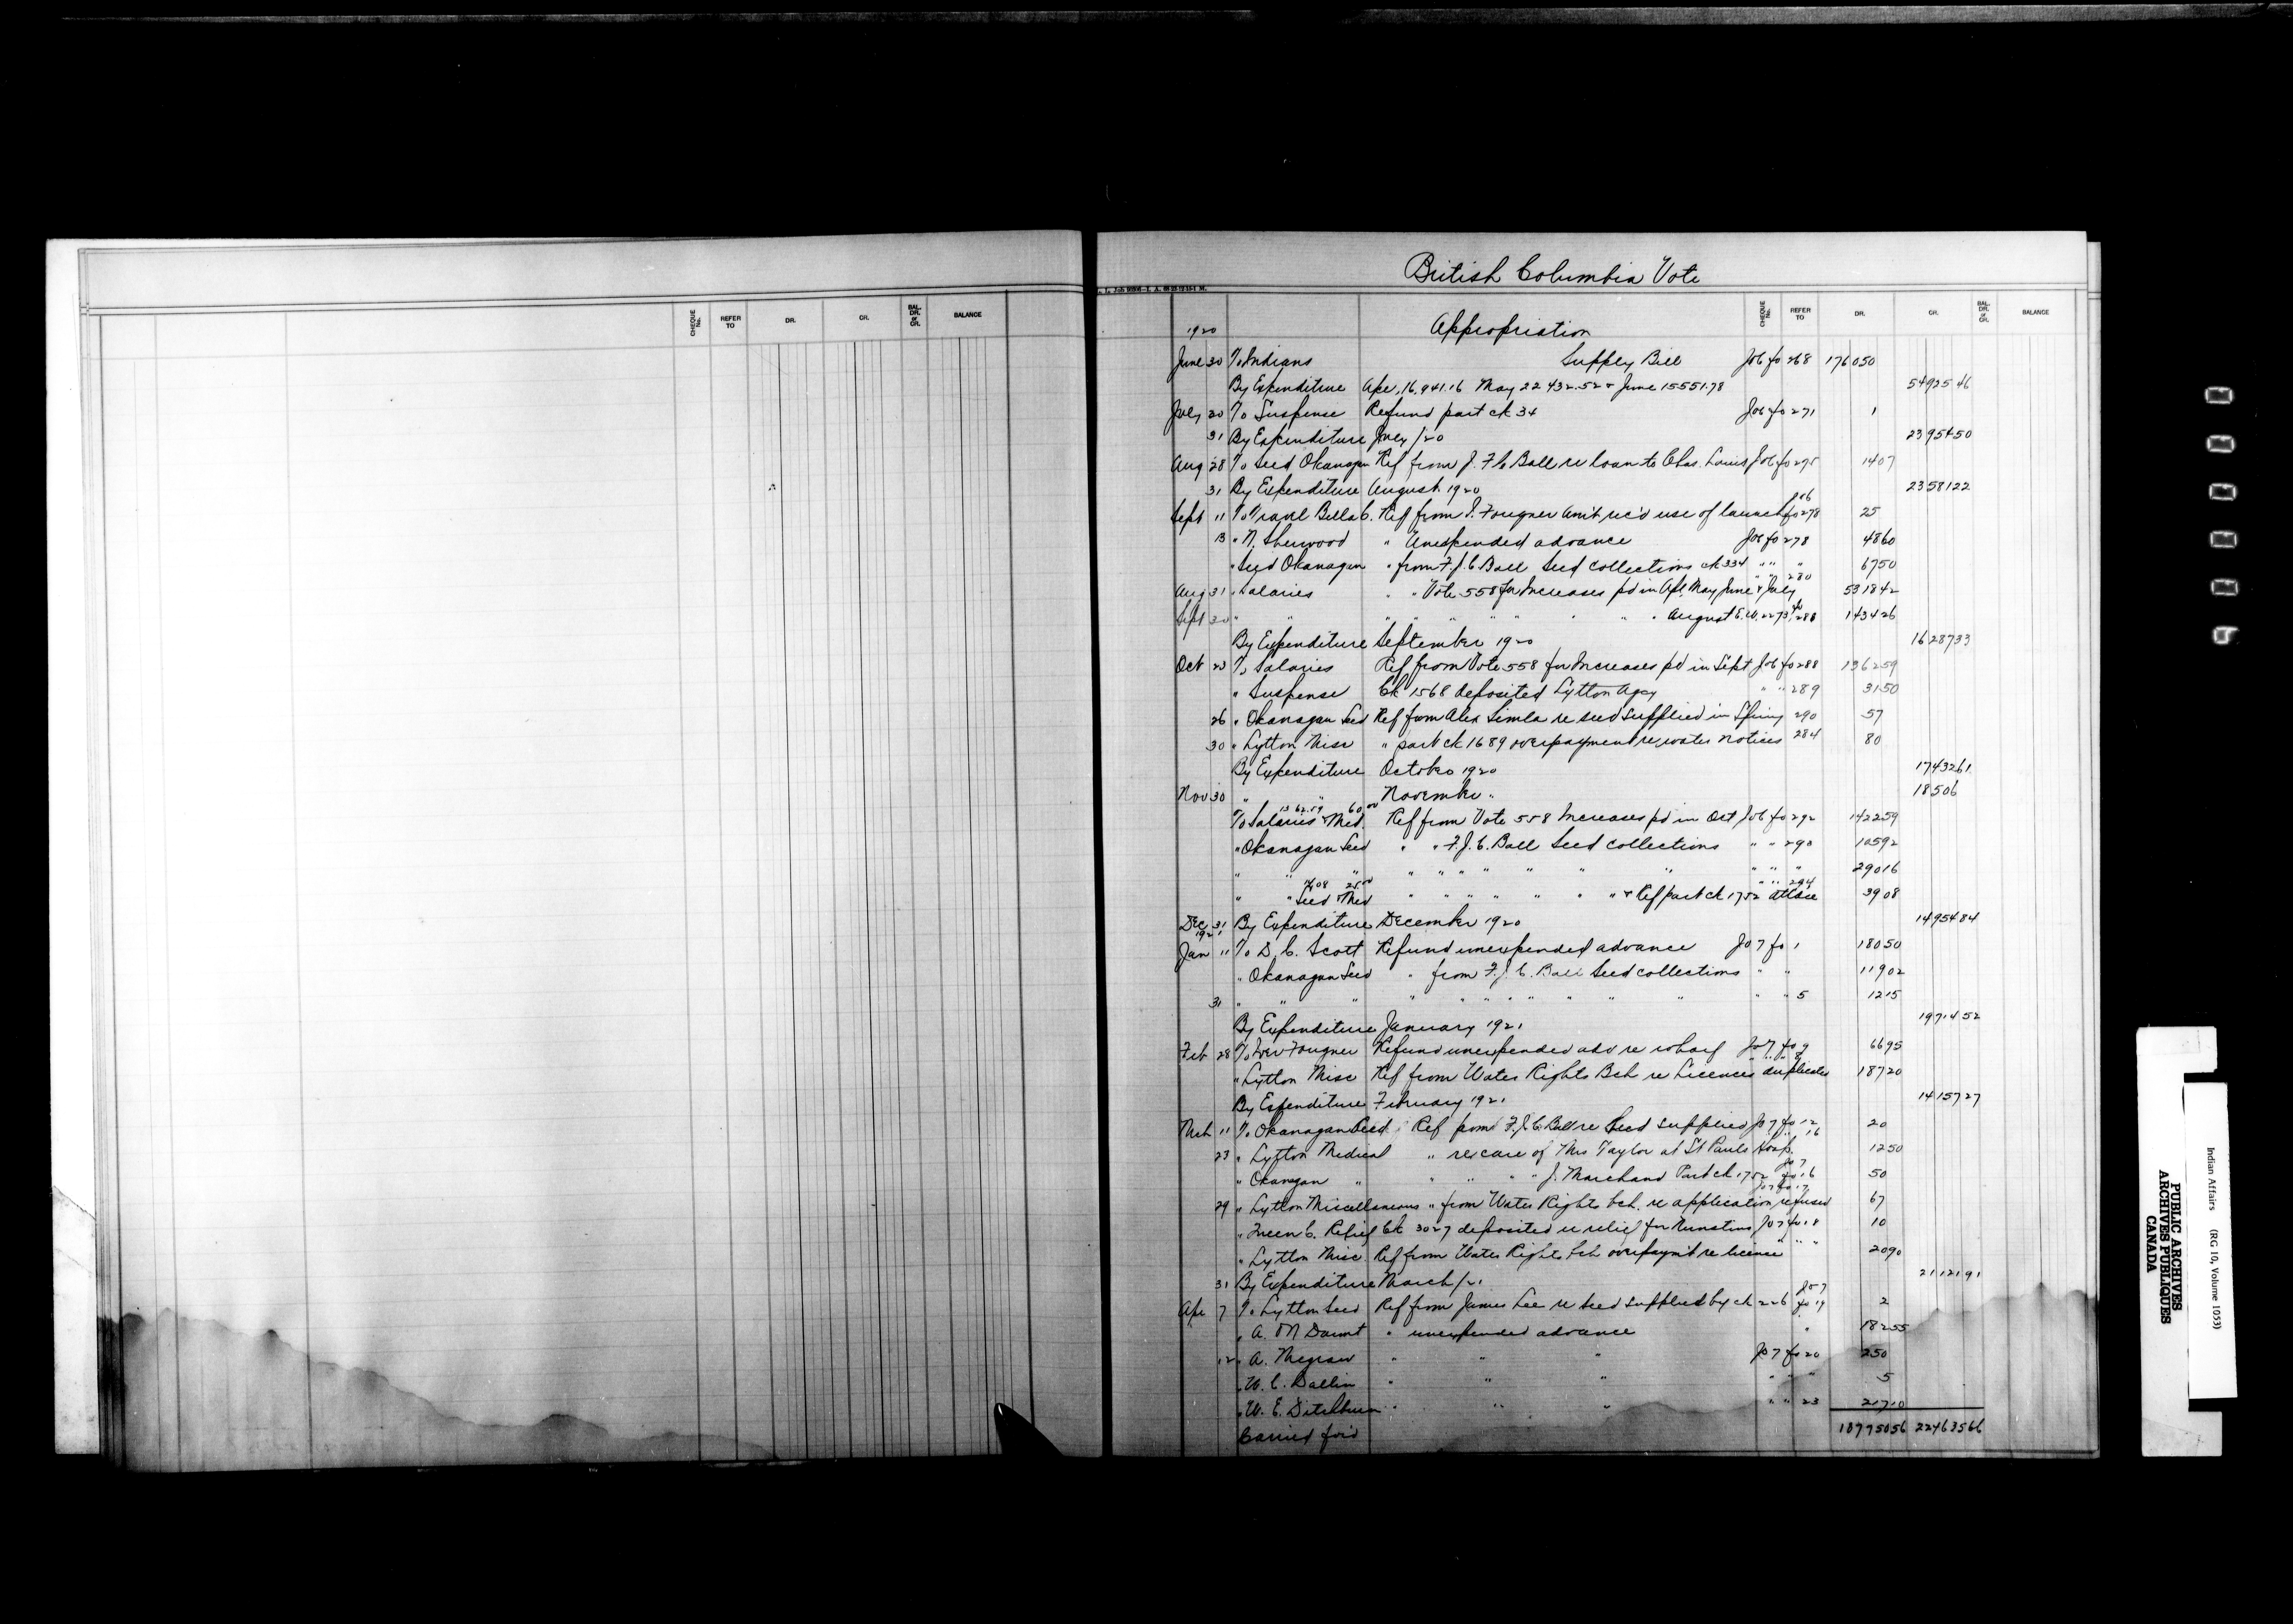 CHEQUE No. REFER TO DR. CR. BAL. DR. or CR. BALANCE
British Columbia Vote
CHEQUE No. REFER TO DR. CR. BAL. DR. or CR. BALANCE
1920 Appropriation
June 30 To Indians Supply Bill Jo 6 fo 268 176050
By Expenditure Apr. 16,941.16 May 22 432.52 & June 15551.78 5492546
July 20 To Suspense Refund part ck 34 Jo 6 fo 271 1
31 By Expenditure July /20 2395450
Aug 28 To Seed Okanagan Ref from J. F. C. Ball re Loan to Chas. Louis Jo 6 fo 275 1407
31 By Expenditure August 1920 2358122
Sept 11 To Travel Bella C. Ref from I. Fougner Amt rec'd use of launch Jo 6 fo 278 25
13 " N. Sherwood " Unexpended advance Jo 6 fo 278 4860
" Seed Okanagan " from F. J. C. Ball Seed collections ck 334 " " " 6750
Aug 31 " Salaries " " Vote 558 for Increases pd in Apl, May, June & July " " 280 531842
Sept 30 " " " " " " " " " August fo 288 143426
By Expenditure September 1920 1628733
Oct 23 To Salaries Ref from Vote 558 for Increases pd in Sept Jo 6 fo 288 136259
" Suspense Ck 1568 deposited Lytton Agcy " " 289 3150
26 " Okanagan Seed Ref from Alex Simla re seed supplied in Spring 290 57
30 " Lytton Misc " part ck 1689 overpayment re water notices 284 80
By Expenditure October 1920 1743261
Nov 30 " " November " 18506
1362.59 60.00
To Salaries & Med. Ref from Vote 558 Increases pd in Oct Jo 6 fo 292 142259
" Okanagan Seed " " F. J. C. Ball Seed collections " " 293 10592
" " " " " " " " " " " " 29016
14.08 25.00
" " Seed & Med " " " " " " " & Ref part ck 1752 " " 294 3908
Dec 31 By Expenditure December 1920 1495484
1921
Jan 11 To D. C. Scott Refund unexpended advance Jo 7 fo 1 18050
" Okanagan Seed " from F. J. C. Ball Seed collections " " 11902
31 " " " " " " " " " " " " " 5 1215
By Expenditure January 1921 1971452
Feb 28 To Iver Fougner Refund unexpended adv re wharf Jo 7 fo 9 6695
" Lytton Misc Ref from Water Rights Bch re Licences duplicates 18720
By Expenditure February 1921 1415727
Mch 11 To Okanagan Seed Ref from F. J. C. Ball re Seed supplies Jo 7 fo 12 20
23 " Lytton Medical " re care of Mrs Taylor at St Pauls Hosp. " " 16 1250
" Okanagan " " " " " J. Marchand Part ck 1752 Jo 7 fo 16 50
29 " Lytton Miscellaneous " from Water Rights bch. re application refused Jo 7 fo 17 67
" Queen C. Relief Ck 3027 deposited re relief for Jo 7 fo 18 10
" Lytton Misc. Ref from Water Rights bch overpaym't re licence " " " 2090
31 By Expenditure March /21 2112191
Apr 7 To Lytton Seed Ref from James Lee re seed supplied by ck 226 Jo 7 fo 19 2
" A. M Daunt " unexpended advance " 18255
12 " A. Megraw " " " Jo 7 fo 20 250
" W. C. " " " " " " 5
" W. E. Ditchburn " " " " " 23 21710
Carried for'd 18775056 22463566
0 0 0 0 0 9
Indian Affairs (RG 10, Volume 1053)
PUBLIC ARCHIVES
ARCHIVES PUBLIQUES
CANADA